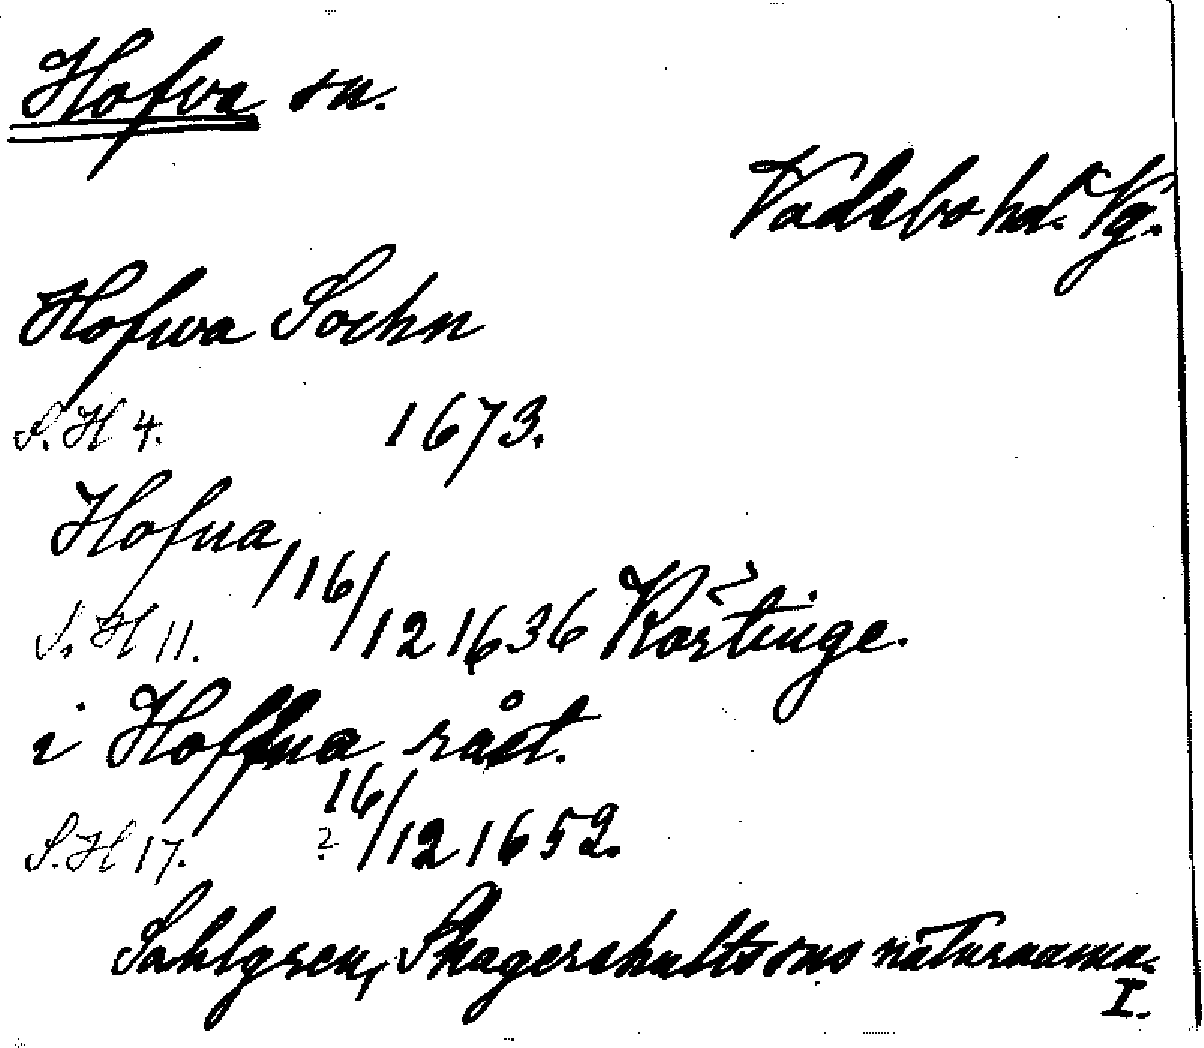 Hofva sn.
Vadsbo hd. Vg.
Hofwa Sochn
S. H 4. 1673.
Hofua
S. H 11. /16/12 1636 Körtinge.
i Hoffua råst.
S. H 17. ? 16/12 1652.
Sahlgren, Skagershults sns naturnamn
I.